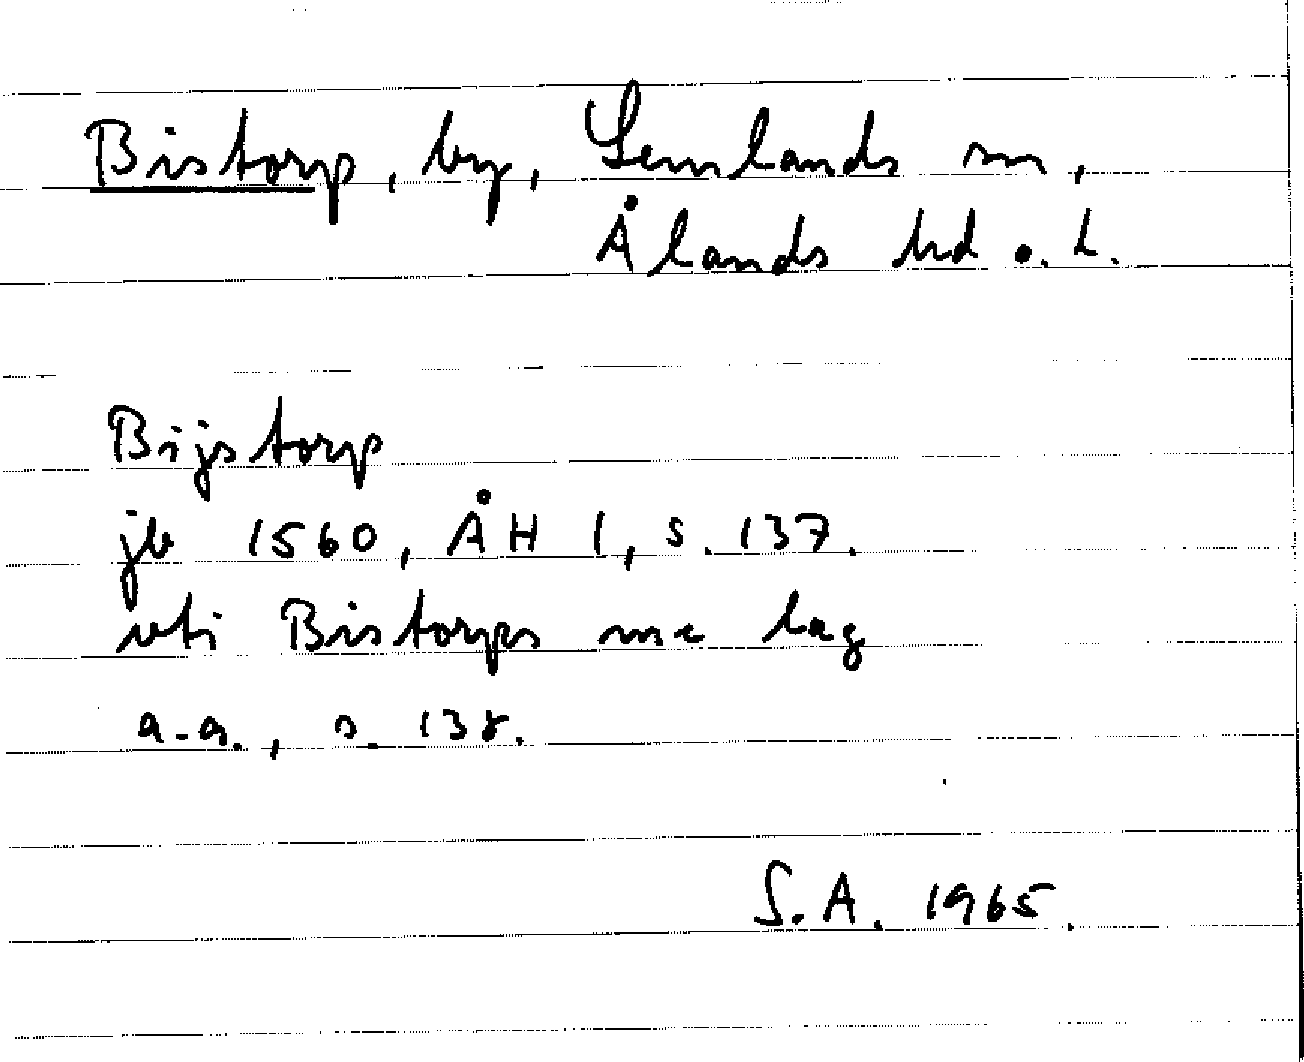 Bistorp, by, Lemlands sn,
Ålands hd o. L.
Bijstorp
jb 1560, ÅH 1, s. 137.
uti Bistorps lag
a.a., s. 138.
S.A. 1965.